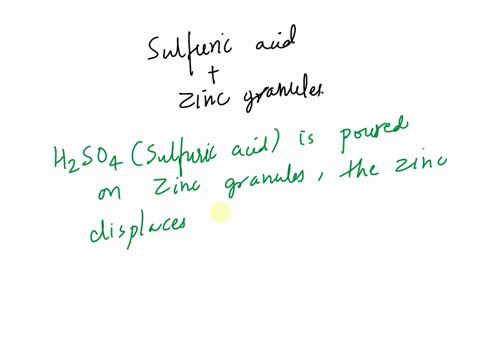 Sulfuric acid
+
Zinc granules.
H₂SO₄ (Sulfuric acid) is poured
on Zinc granules, the zinc
displaces